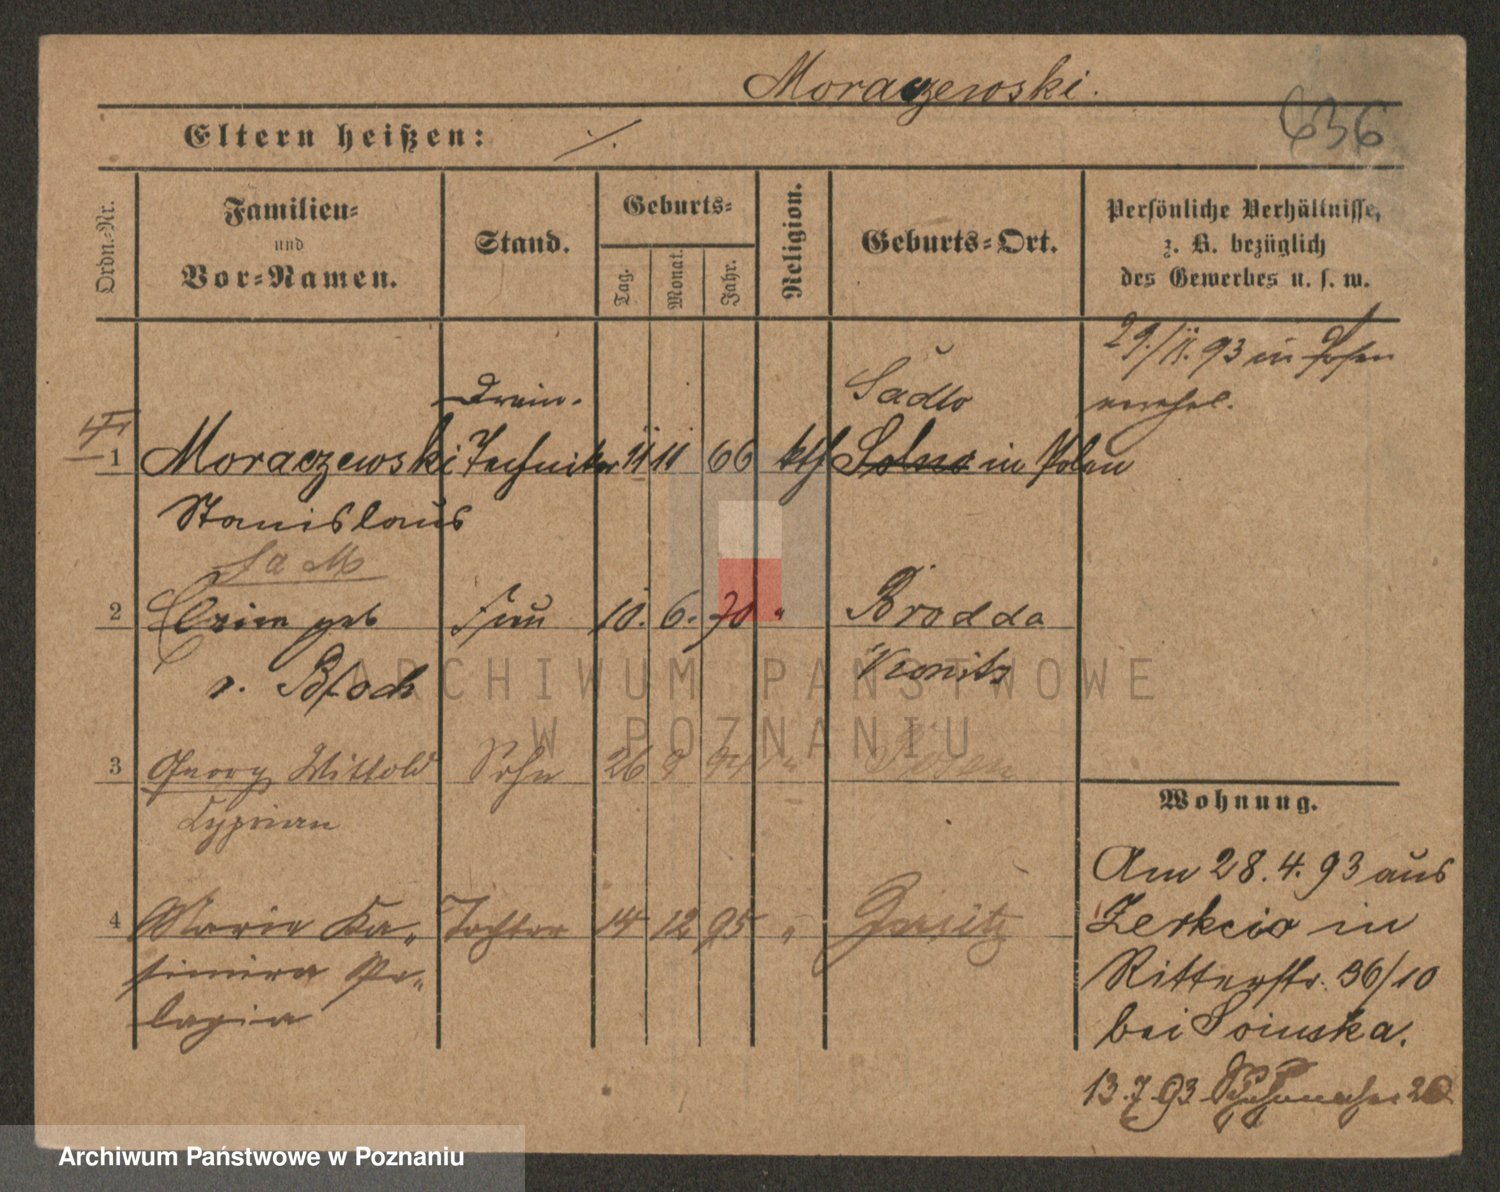 Moraczewski.
636
Eltern heißen: ./.
Ordn.-Nr.
Familien-
und
Vor-Namen.
Stand.
Geburts-
Tag.
Monat.
Jahr.
Religion.
Geburts-Ort.
Persönliche Verhältnisse,
z. B. bezüglich
des Gewerbes u. s. w.
29./11. 93 in Posen
verehel.
Drain-
Sadło
1 Moraczewski Techniker 11 11 66 kth in Polen
Stanislaus
2 geb Frau 10. 6. 70 " Brodda
v. Bloch
3 Georg Wittold Sohn 26 9 94 " Posen
Cyprian
4 Maria Ka- Tochter 14 12 95 " Jersitz
simira Pe-
lagia
Wohnung.
Am 28. 4. 93 aus
Zerkow in
Ritterstr. 36/10
bei
13. 7. 93 Schuhmacher 20
ARCHIWUM PAŃSTWOWE
W POZNANIU
Archiwum Państwowe w Poznaniu